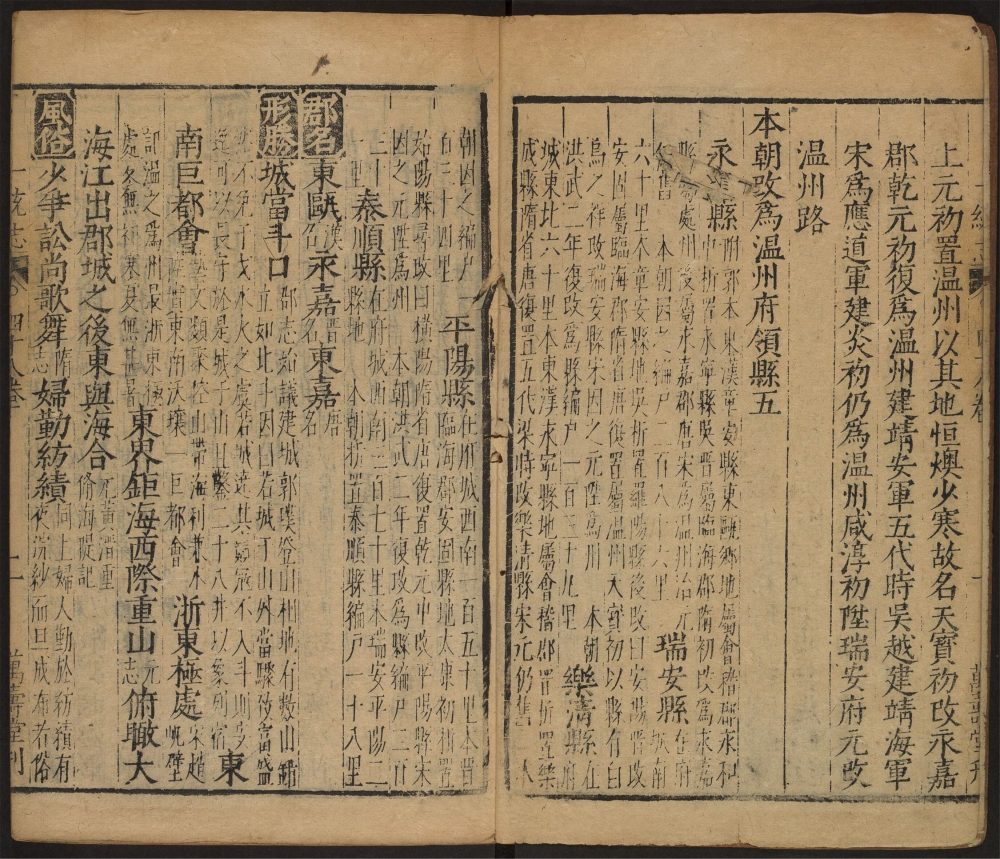 上元初置温州以其地恒燠少寒故名天寶初改永嘉
郡乾元初復爲温州建靖安軍五代時吳越建靖海軍
宋爲應道軍建炎初仍爲温州咸淳初陞瑞安府元改
温州路
本朝改爲温州府領縣五
縣附郭本東漢章安縣東甌鄉地屬會稽郡永和
中析置永寧縣吳晉屬臨海郡隋初改爲永嘉
縣屬處州後屬永嘉郡唐宋爲温州治元
本朝因之編戶二百八十六里
瑞安縣在府城南
六十里本章安縣地吳析置羅陽縣後改曰安陽晉改
安固屬臨海郡唐復置屬温州天寶初以縣有白
烏之祥改瑞安宋因之元陞爲州
本朝
洪武二年復改爲縣編戶一百三十九里
樂清縣在府
城東北六十里本東漢永寧縣地屬會稽郡晉析置樂
成縣隋省唐復置五代梁時改樂清縣宋元仍舊
朝因之編戶
百三十四里
平陽縣在府城西南一百五十里本晉
始陽縣尋改曰橫陽隋省唐復置乾元中改平陽縣宋
因之元陞爲州
本朝洪武二年復改爲縣編戶二百
三十里
泰順縣在府城西南三百七十里本瑞安平陽二
縣地
本朝析置泰順縣編戶一十八里
郡名
東甌漢名
永嘉晉名
東嘉唐名
形勝
城當斗口郡志始議建城郭璞登山相地有數山錯
立如北斗因曰若城于山外當驟致富盛
然不免于戈水火之虞若城遶其顛寇不入斗則
可以長安於是城于山且鑿二十八井以象列宿
東
南巨都會
東南沃壤一巨都會
浙東極處元
記温之爲州最浙東極
處冬無祁寒夏無甚暑
東界鉅海西際重山志
俯瞰大
海江出郡城之後東與海合元黃溍重
脩海隄記
風俗
少爭訟尚歌舞隋志
婦勤紡績
向上婦人勤於紡績有
夜浣紗而旦成布者俗
一統志
四十八卷
萬壽堂刊